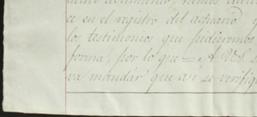 en el registro del actuario y
los testimonios que pidiéremos
forma, por lo que = A V.S. s
va mandar que asi se verifiq